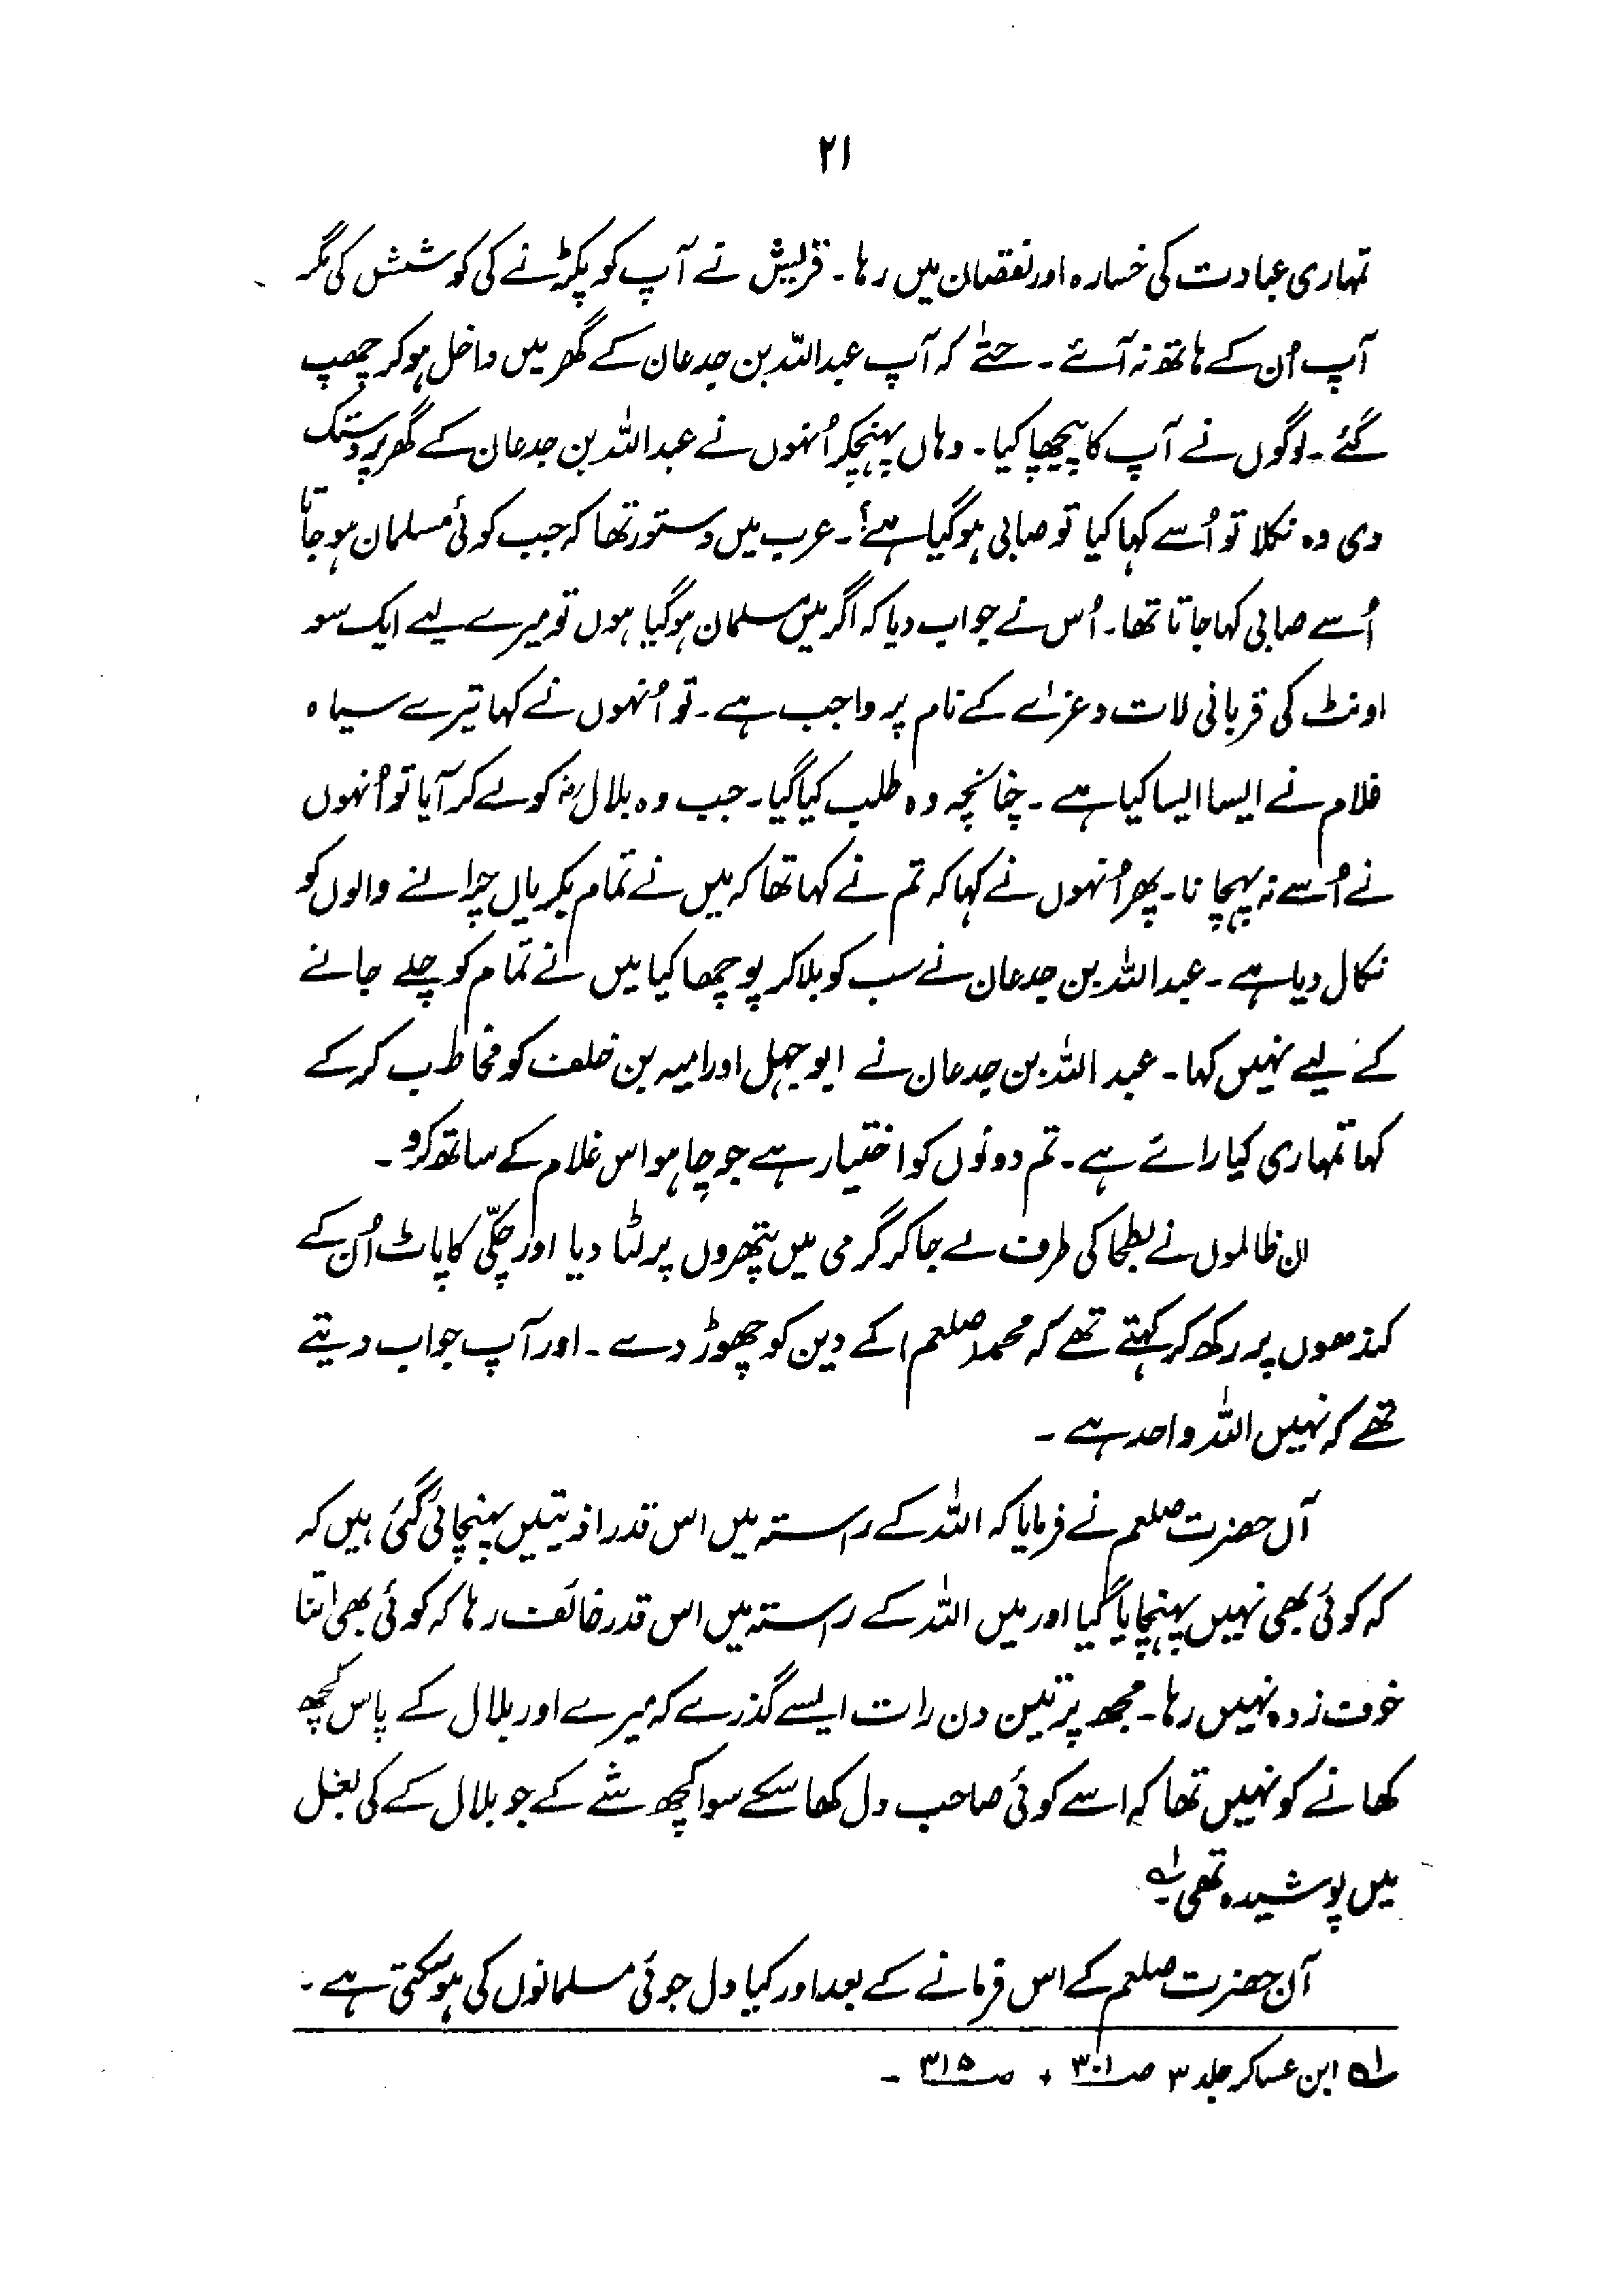 ۲۱
تمہاری عبادت کی خسارہ اور نقصان میں رہا۔ قریش نے آپ کو پکڑنے کی کوشش کی مگر
آپ اُن کے ہاتھ نہ آئے۔ حتےٰ کہ آپ عبداللہ بن جدعان کے گھر میں داخل ہوکر چھپ
گئے۔ لوگوں نے آپ کا پیچھا کیا۔ وہاں پہنچکر اُنہوں نے عبداللہ بن جدعان کے گھر پر دستک
دی وہ نکلا تو اُسے کہا کیا تو صابی ہوگیا ہے؟۔ عرب میں دستور تھا کہ جب کوئی مسلمان ہوجاتا
اُسے صابی کہا جاتا تھا۔ اُس نے جواب دیا کہ اگر میں مسلمان ہوگیا ہوں تو میرے لیے ایک سو
اونٹ کی قربانی لات و عزےٰ کے نام پر واجب ہے۔ تو اُنہوں نے کہا تیرے سیاہ
غلام نے ایسا ایسا کیا ہے۔ چنانچہ وہ طلب کیا گیا۔ جب وہ بلالؓ کو لے کر آیا تو اُنہوں
نے اُسے نہ پہچانا۔ پھر اُنہوں نے کہا کہ تم نے کہا تھا کہ میں نے تمام بکریاں چرانے والوں کو
نکال دیا ہے۔ عبداللہ بن جدعان نے سب کو بلاکر پوچھا کیا میں نے تمام کو چلے جانے
کے لیے نہیں کہا۔ عبداللہ بن جدعان نے ابوجہل اور امیہ بن خلف کو مخاطب کرکے
کہا تمہاری کیا رائے ہے۔ تم دونوں کو اختیار ہے جو چاہو اس غلام کے ساتھ کرو۔
ان ظالموں نے بطحا کی طرف لے جاکر گرمی میں پتھروں پر لٹا دیا اور چکّی کا پاٹ اُن کے
کندھوں پر رکھ کر کہتے تھے کہ محمد (صلعم) کے دین کو چھوڑ دے۔ اور آپ جواب دیتے
تھے کہ نہیں اللہ واحد ہے۔
آں حضرت صلعم نے فرمایا کہ اللہ کے رستہ میں اس قدر اذیتیں پہنچائی گئی ہیں کہ
کہ کوئی بھی نہیں پہنچایا گیا اور میں اللہ کے رستہ میں اس قدر خائف رہا کہ کوئی بھی اتنا
خوف زدہ نہیں رہا۔ مجھ پر تین دن رات ایسے گذرے کہ میرے اور بلال کے پاس کچھ
کھانے کو نہیں تھا کہ اسے کوئی صاحب دل کھا سکے سوا کچھ شے کے جو بلال کے کی بغل
میں پوشیدہ تھی۔ لہ
آں حضرت صلعم کے اس فرمانے کے بعد اور کیا دل جوئی مسلمانوں کی ہوسکتی ہے۔
لہ ابن عساکر جلد ۳ صـ۳۰۱ + صـ۳۱۵ ۔